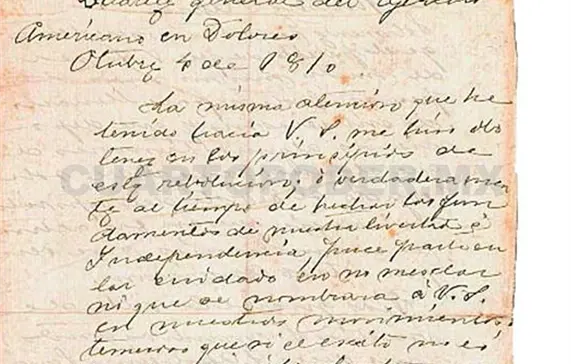 Cuartel general del ejército
Américano en Dolores
Otubre 4 de 1810.
La misma atención que he
tenido hacia V. S. me hiso obs
tener en los prinsipios de
esta revolución, ó verdaderamen
te al tiempo de hechar los fun
damentos de nuestra livertad é
Independencia, puce particu
lar cuidado en no mesclar
ni que se nombrara á V. S.
en nuestros movimientos,
temeroso que si el exito no es
CUARTOPODER.MX